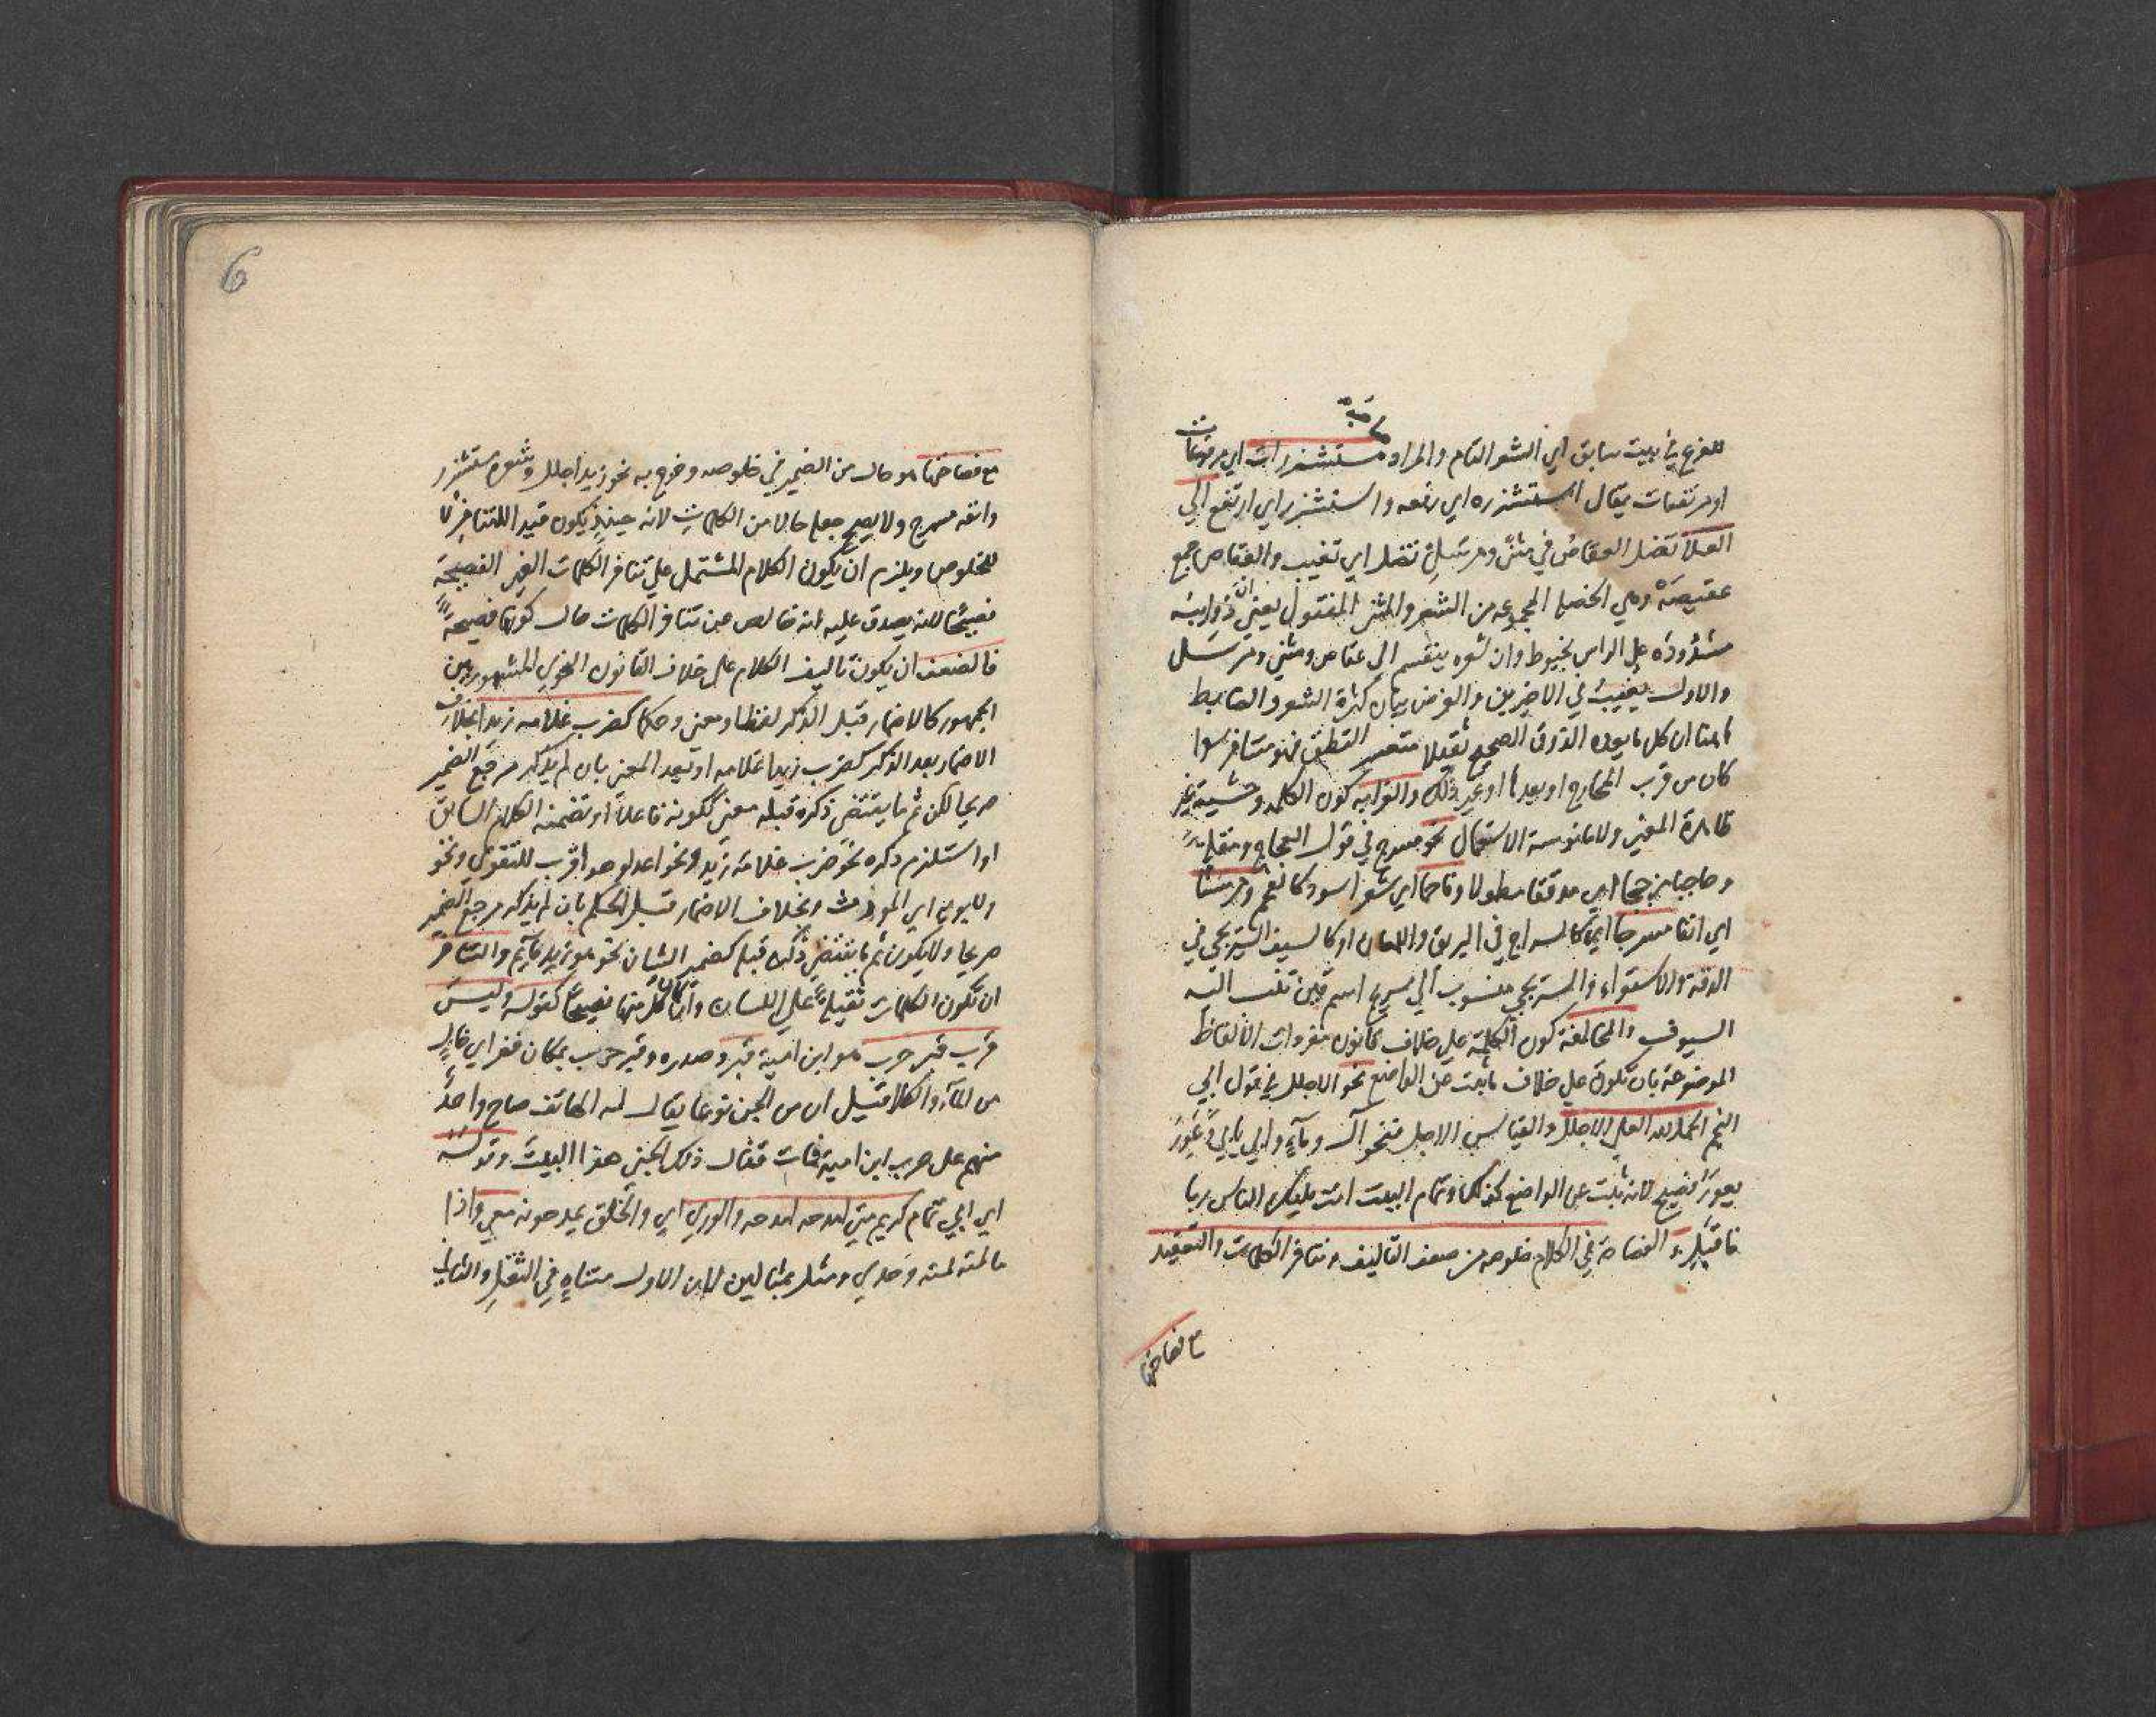 للفرع في بيت سابق اي الشعر التام والمراد مستشزرات اي مرتفعات
او مرتفعات يقال استشزره اي رفعه واستشزر اي ارتفع الي
العلا تضل العقاص في مثنى ومرسل تضل اي تغيب والعقاص جمع
عقيصة وهي الخصلة المجموعة من الشعر والمثنى المفتول يعني ان ذوايبه
مشدودة على الراس بخيوط وان شعره ينقسم الى عقاص ومثنى ومرسل
والاول يغيب في الاخيرين والغرض بيان كثرة الشعر والضابط
هاهنا ان كل ما يعده الذوق الصحيح ثقيلا متعسر النطق فهو متنافر سوا
كان من قرب المخارج او بعدها او غير ذلك والغرابه كون الكلمه وحشية غير
ظاهرة المعني ولا مانوسة الاستعمال نحو مسرج في قول العجاج ومقلة
وحاجبا مزججا اي مدققا مطولا وفاحما اي شعرا اسود كالفحم ومرسنا
اي انفا مسرجا اي كالسراج في البريق واللمعان او كالسيف السريجي في
الدقة والاستواء والسريجي منسوب الي سريج اسم قين تنسب اليه
السيوف والمخالفة كون الكلمة علي خلاف قانون مفردات الالفاظ
الموضوعة بان تكون علي خلاف ما ثبت عن الواضع نحو الاجلل في قول ابي
النجم الحمد لله العلي الاجلل والقياس الاجل فنحو آل وماء وابي يابي وعور
يعور فصيح لانه ثبت عن الواضع كذلك وتمام البيت انت مليك الناس ربا
فاقبل والفصاحة في الكلام خلوصه من ضعف التاليف وتنافر الكلمات والتعقيد
مع فصاحتها
6
مع فصاحتها هو حال من الضمير في خلوصه وخرج به نحو زيد اجلل وشعره مستشزر
وانفه مسرج ولا يصح جعله حالا من الكلمات لانه حينئذ يكون قيدا للتنافر لا
للخلوص ويلزم ان يكون الكلام المشتمل علي تنافر الكلمات الغير الفصيحة
فصيحا لانه يصدق عليه انه خالص من تنافر الكلمات حال كونها فصيحة
فالضعف ان يكون تاليف الكلام على خلاف القانون النحوي المشهور بين
الجمهور كالاضمار قبل الذكر لفظا ومعنى وحكما كضرب غلامه زيدا بخلاف
الاضمار بعد الذكر كضرب زيدا غلامه او بعد المعنى بان لم يذكر مرجع الضمير
صريحا لكن ثم ما يقتضي ذكره قبله معنى ككونه فاعلا او تضمنه الكلام السابق
او استلزم ذكره نحو ضرب غلامه زيد ونحو اعدلوا هو اقرب للتقوي ونحو
ولابويه اي المورث وبخلاف الاضمار قبل الحكم بان لم يذكر مرجع الضمير
صريحا ولا يكون ثم ما يقتضي ذكره قبله كضمير الشان نحو هو زيد قايم والتنافر
ان تكون الكلمات ثقيلة علي اللسان وان كان كل منها فصيحا كقوله وليس
قرب قبر حرب هو ابن امية قبر وصدره وقبر حرب بمكان قفر اي خال
من الماء والكلا قيل ان من الجن نوعا يقال له الهاتف صاح واحد
منهم على حرب ابن امية فمات فقال ذلك الجني هذا البيت وقوله
اي ابي تمام كريم متى امدحه امدحه والوري اي والخلق يمدحونه معي واذا
ما لمته لمته وحدي ومثل بمثالين لان الاول متناه في الثقل والثاني